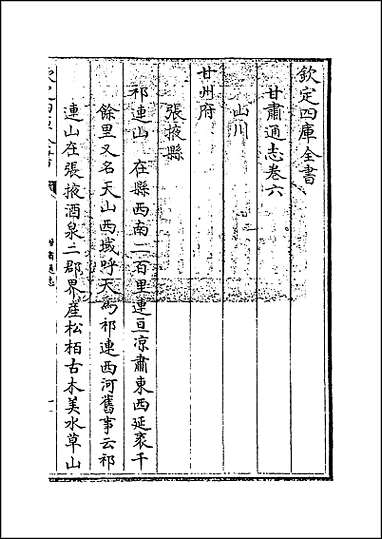 欽定四庫全書
甘肅通志卷六
山川
甘州府
張掖縣
祁連山在縣西南二百里連亘凉肅東西延袤千
餘里又名天山西域呼天爲祁連西河舊事云祁
連山在張掖酒泉二郡界産松栢古木美水草山